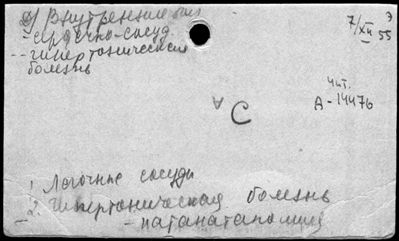 Внутренние бол
- сердечно-сосуд.
-- гипертоническая
болезнь
7/XII 55
Э
чит.
А-14476
А
С
1. Легочные сосуды
2. Гипертоническая болезнь
- патанатомия